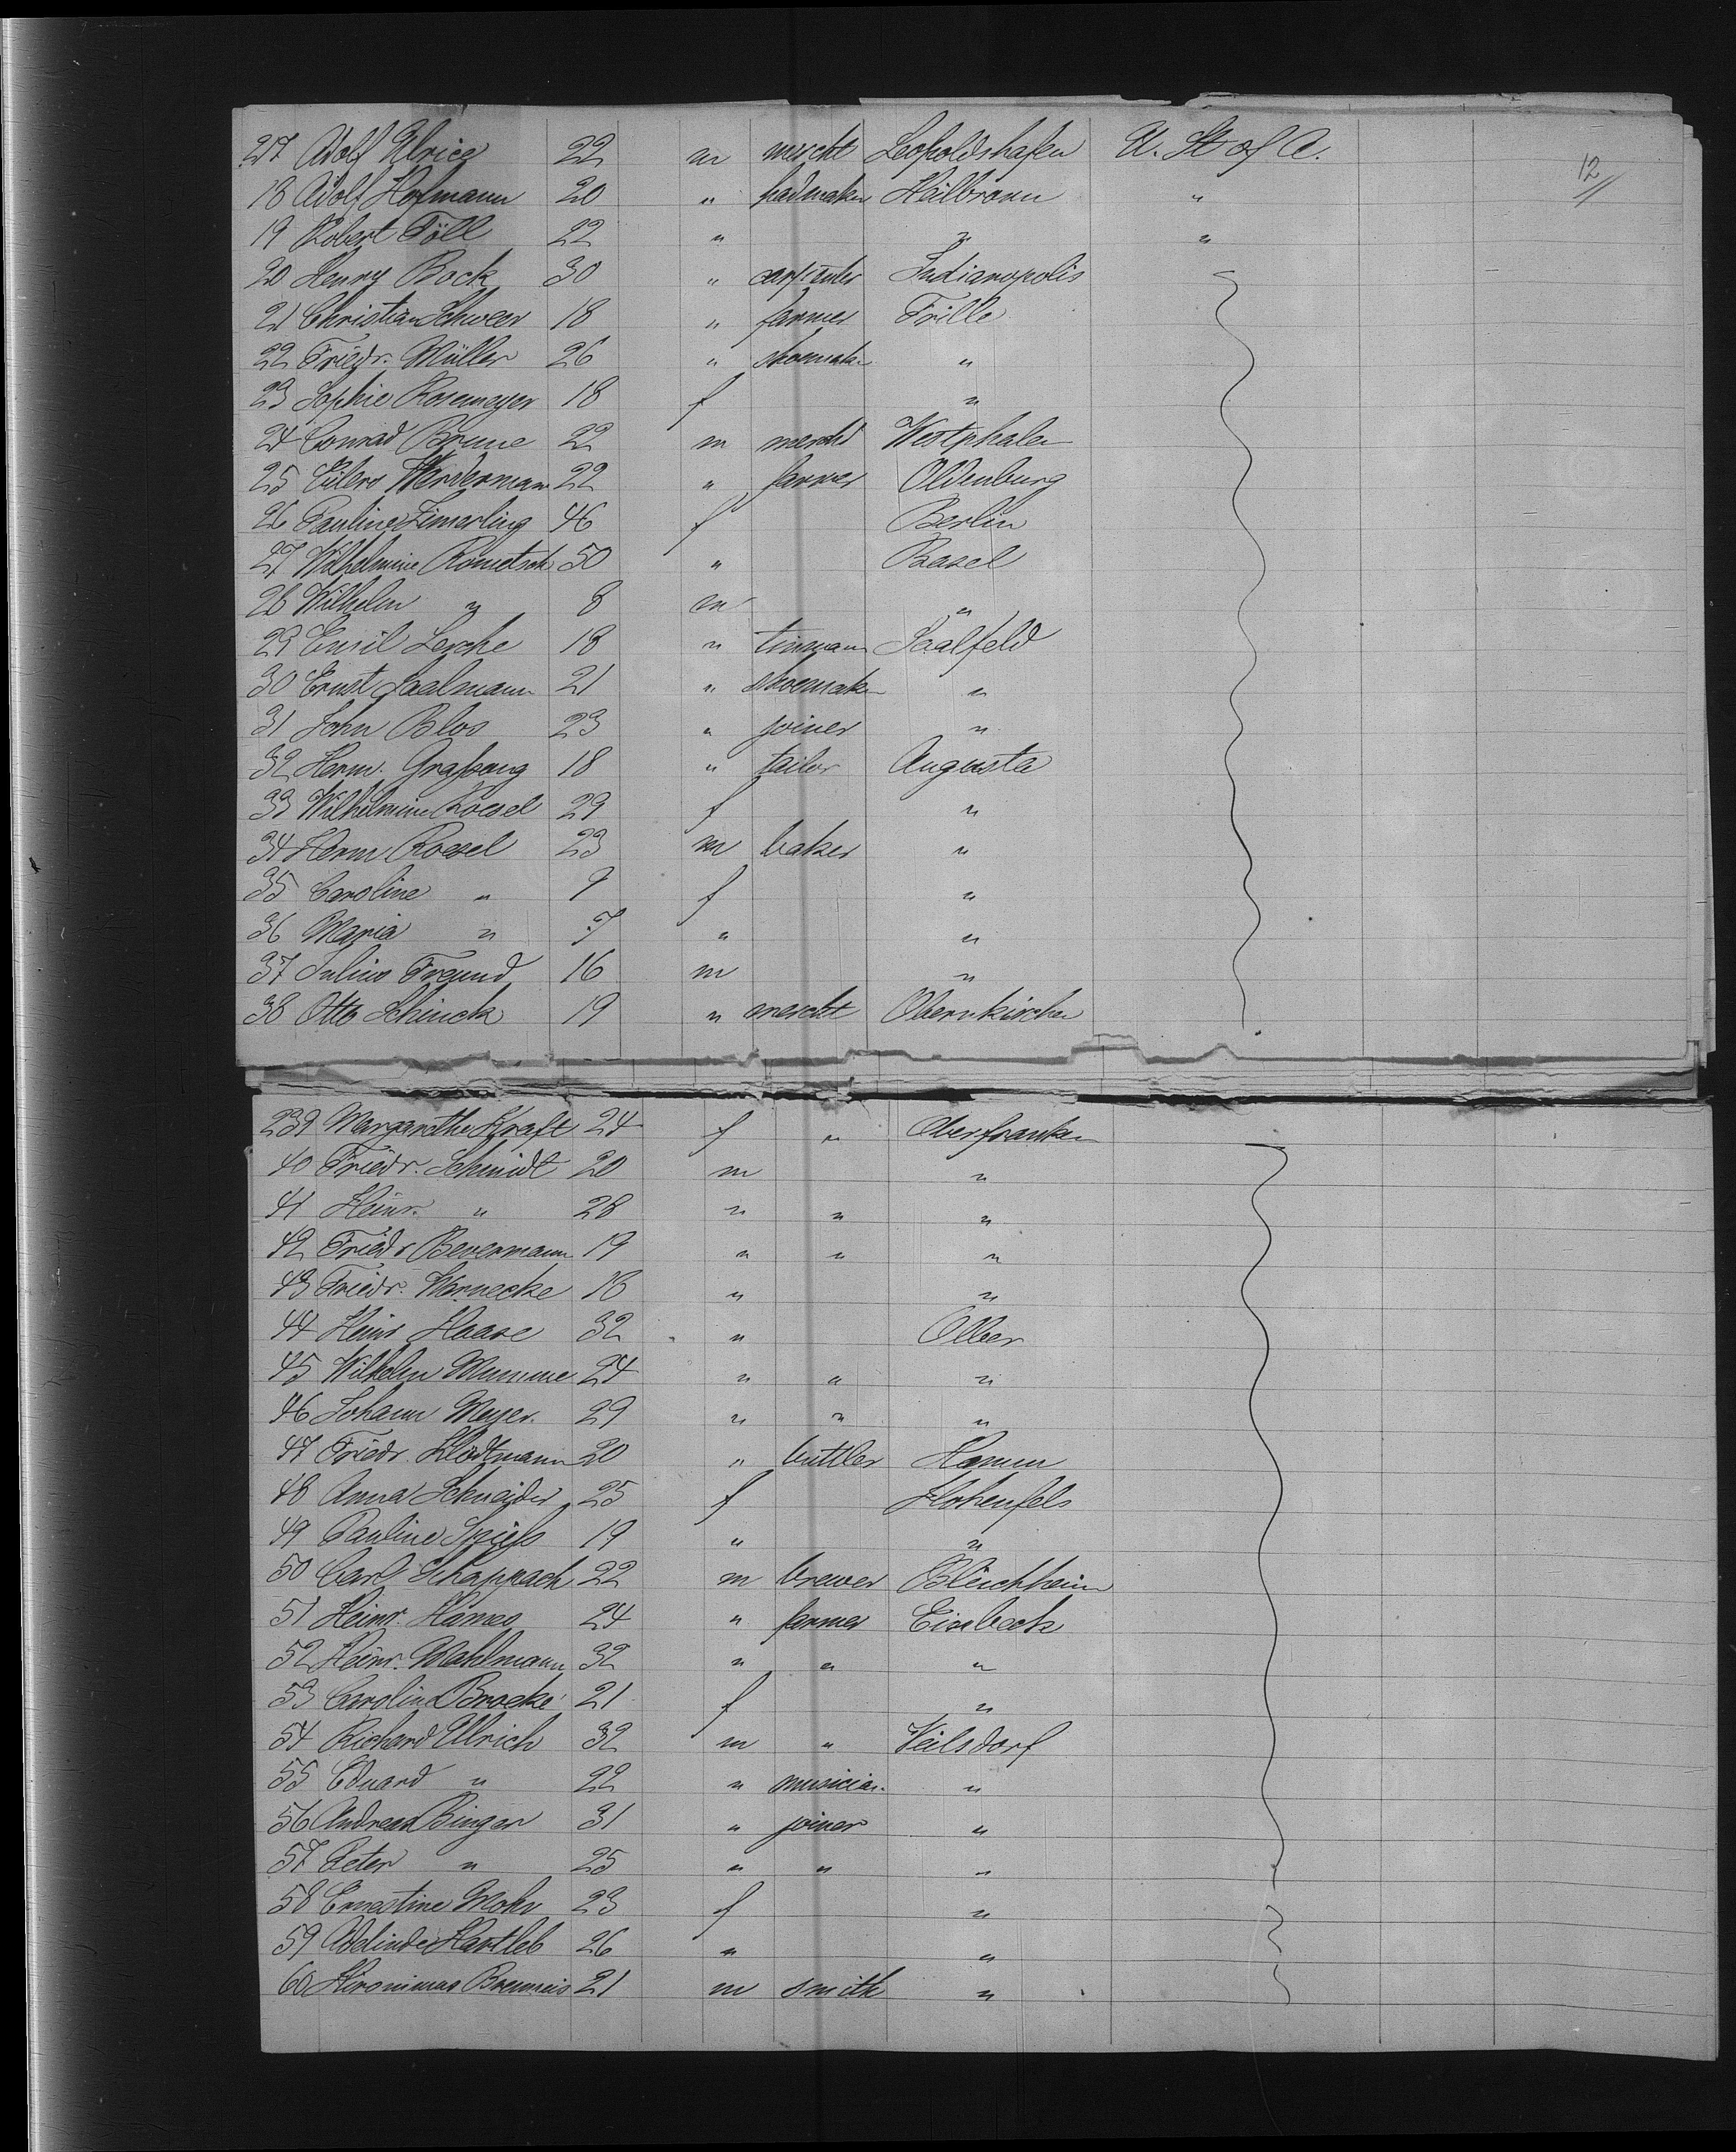 217 Adolf Ulrici 22 m mercht Leopoldshafen U. St of A.
12
18 Adolf Hofmann 20 " Heilbronn "
19 Robert Föll 22 " " "
20 Henry Bock 30 " carpenter Indianopolis
21 Christian Schweer 18 " farmer Frille
22 Friedr. Müller 26 " shoemaker "
23 Sophie Rosemeyer 18 f "
24 Conrad Brune 22 m mercht Westphalen
25 Eilers Werderman 22 " farmer Oldenburg
26 Pauline Zimerling 46 f Berlin
27 Wilhelmine Rometsch 50 " Basel
28 Wilhelm " 8 m "
29 Emil Lerche 18 " tinman Saalfeld
30 Ernst Saalmann 21 " shoemaker "
31 John Blos 23 " joiner "
32 Herm. 18 " tailor Augusta
33 Wilhelmine Roesel 29 f "
34 Herm Roesel 23 m baker "
35 Caroline " 9 f "
36 Maria " 7 " "
37 Julius Freund 16 m "
38 Otto Schinck 19 " mercht Obernkirchen
239 Margarethe Kraft 24 f " Oberfranken
40 Friedr. Schmidt 20 m "
41 Heinr. " 28 " " "
42 Friedr Bevermann 19 " " "
43 Friedr. Wernecke 18 " "
44 Heinr Haase 32 " Olber
45 Wilhelm Mumme 24 " " "
46 Johann Meyer. 29 " " "
47 Friedr. Klodtmann 20 " buttler Hamm
48 Anna Schneider 25 f Hohenfels
49 Pauline Spiess 19 " "
50 Carl Schappach 22 m brewer Bleichheim
51 Heinr. Hames 24 " farmer Eisbeck
52 Heinr. Mahlmann 32 " " "
53 Carolina Brocke 21 f "
54 Richard Ullrich 32 m " Veilsdorf
55 Eduard " 22 " musician. "
56 Andreas Binger 31 " joiner "
57 Peter " 25 " " "
58 Ernestine Mohr 23 f "
59 Adelinde Hartleb 26 " "
60 Hironimus 21 m smith "